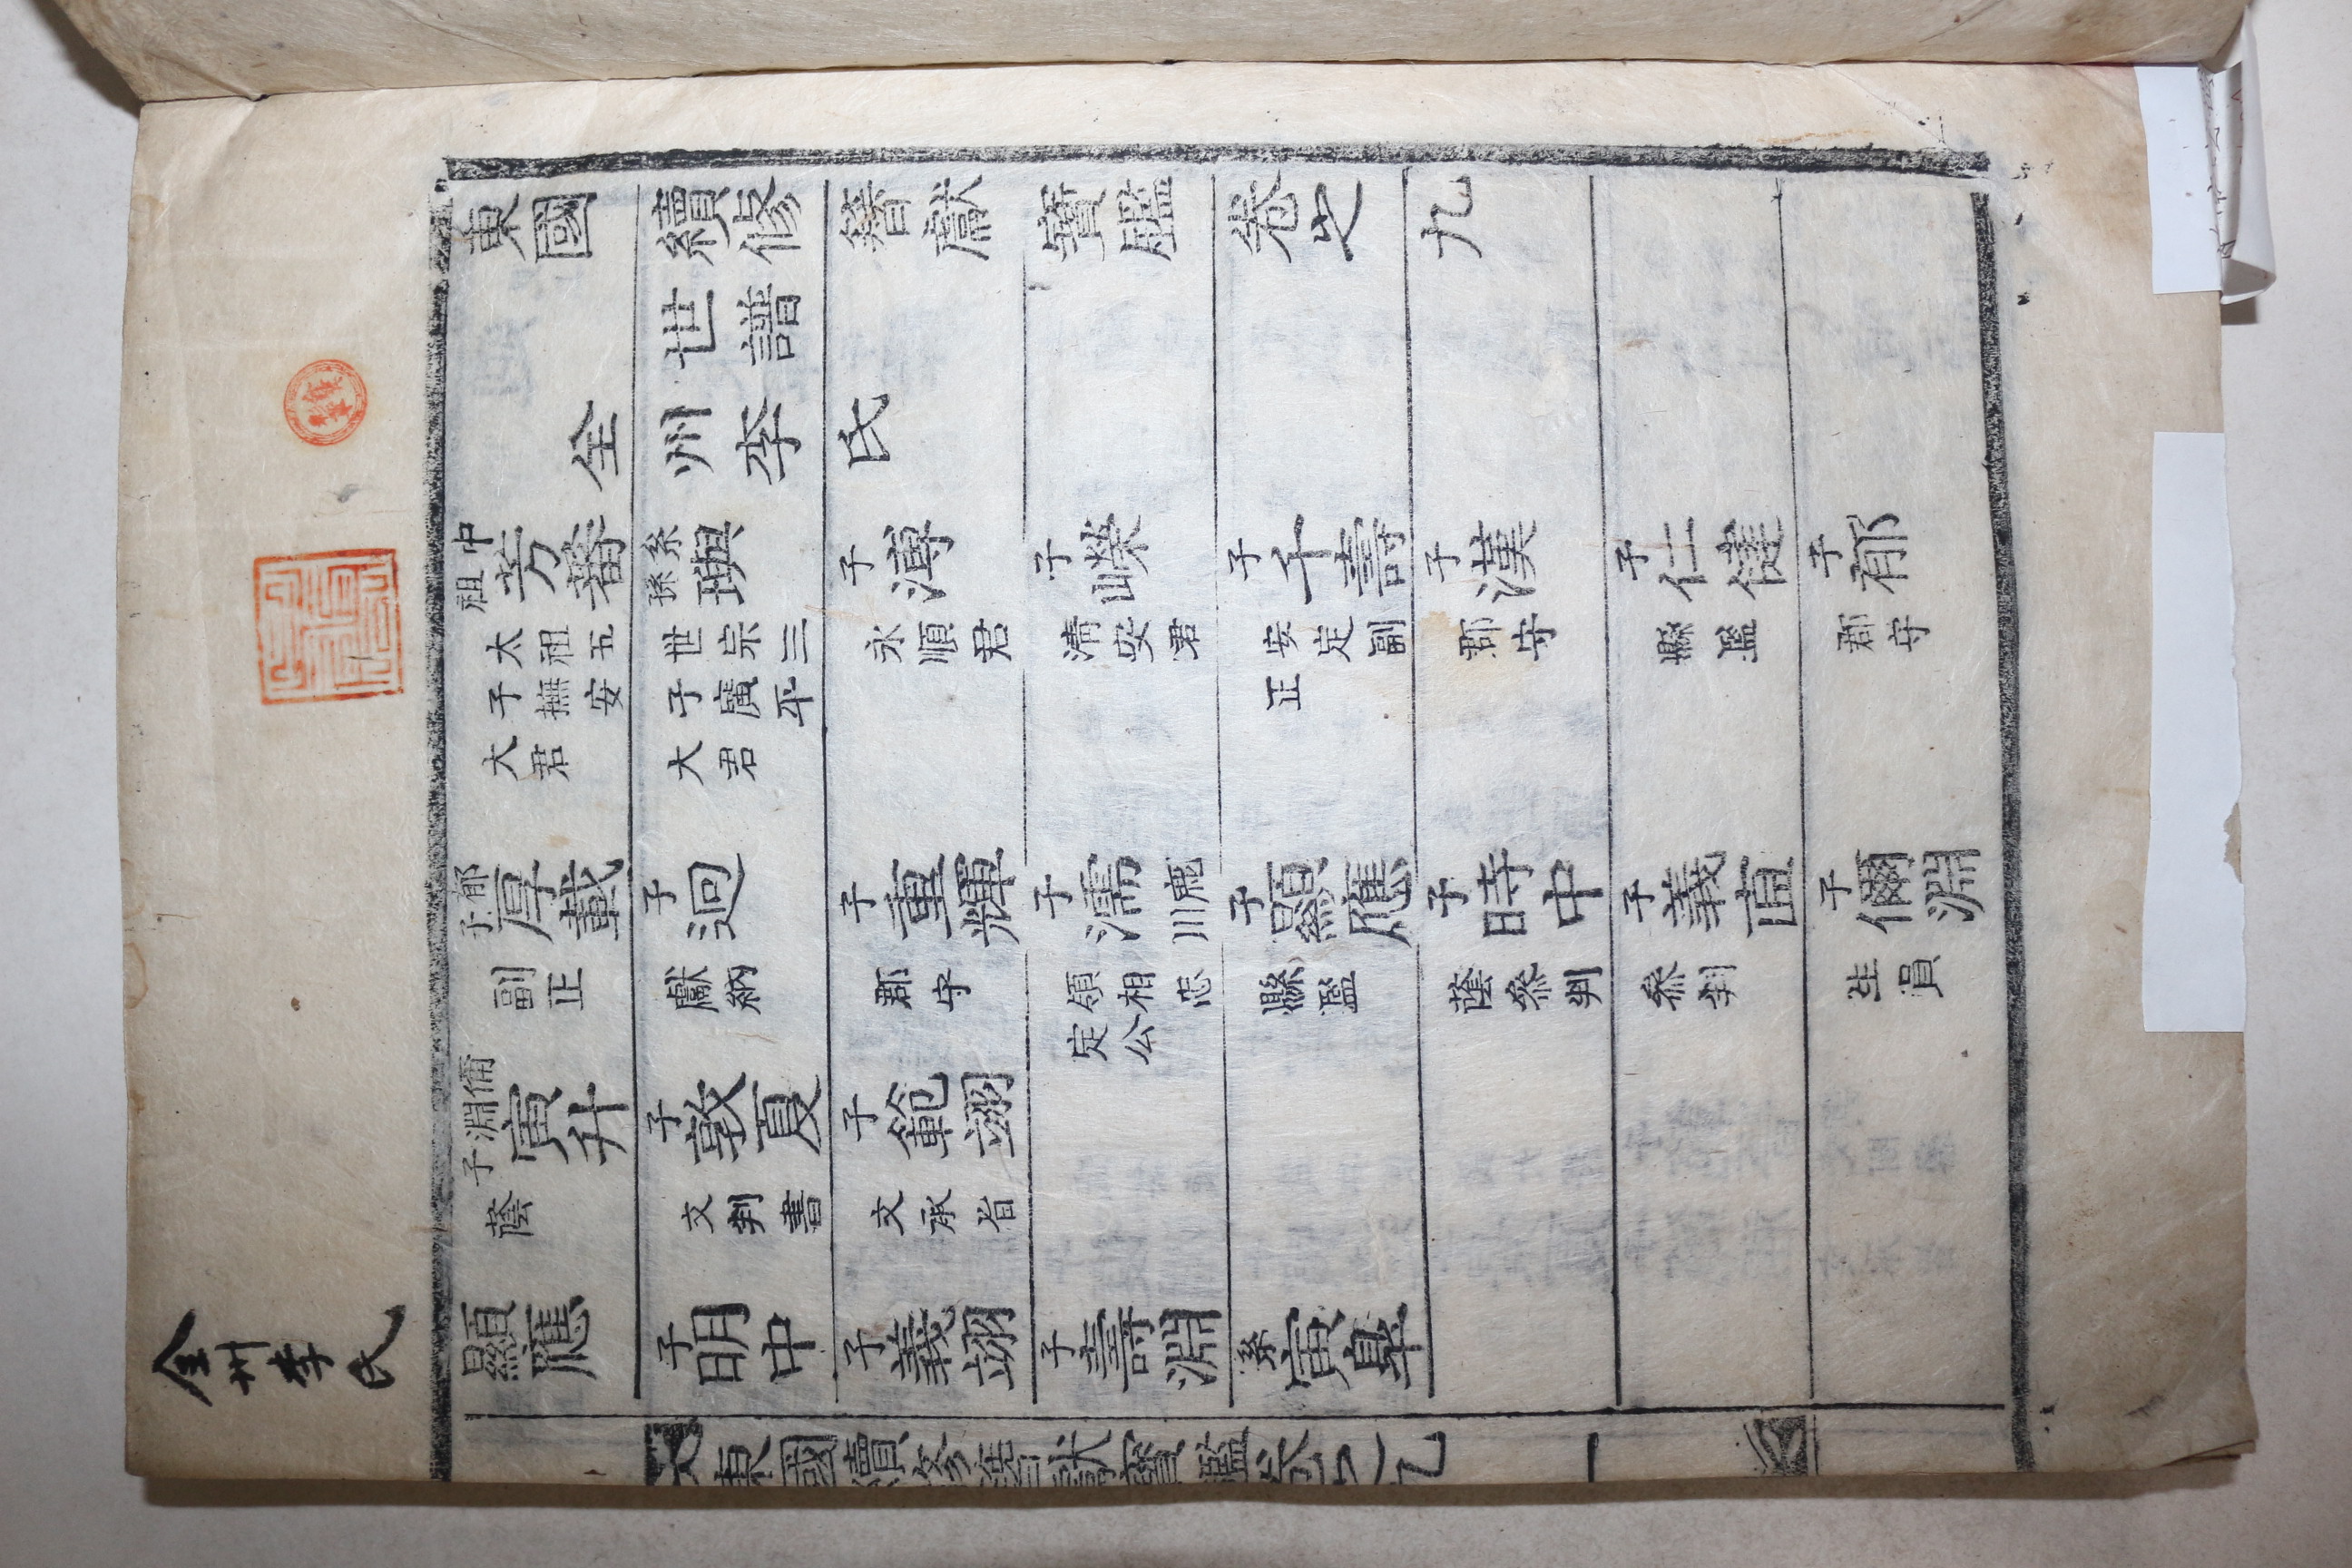 全州李氏
東國續修簪獻寶鑑卷之九
世譜
全州李氏
中祖芳蕃 系孫璵 子溥 子嶸 子千壽 子漢 子仁健 子郁
太祖五子撫安大君 世宗三子廣平大君 永順君 淸安君 安定副正 郡守 縣監 郡守
郁子厚載 子逈 子重輝 子濡 鹿川 子顯應 子時中 子義直 子儞淵
副正 獻納 郡守 領相忠定公 縣監 蔭參判 參判 生員
儞淵子寅升 子敦夏 子範翊
蔭 文判書 文承旨
顯應 子明中 子義翊 子壽淵 系寅皐
東國續修簪獻寶鑑卷之九 一